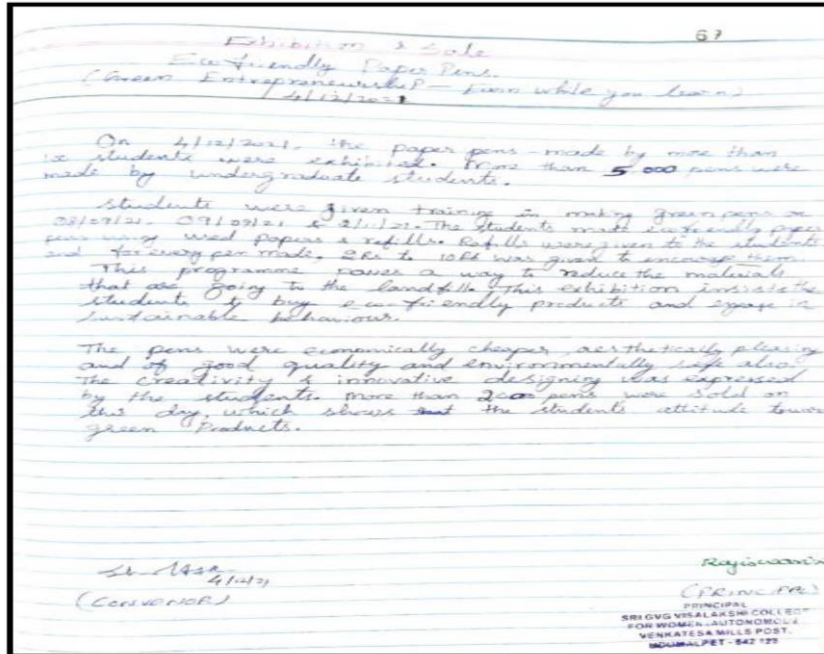 67
Exhibition & Sale
Eco friendly Paper Pens.
(Green Entrepreneurship - Earn while you learn)
4/12/2021
On 4/12/2021, the paper pens made by more than
students were exhibited. More than 5000 pens were
made by undergraduate students.
Students were given training in making green pens on
08/09/21, 09/09/21 & 2/11/21. The students made ecofriendly paper
pens using used papers & refills. Refills were given to the students
and for every pen made, 2Rs to 10Rs was given to encourage them.
This programme paves a way to reduce the materials
that are going to the landfills. This exhibition insists the
students to buy eco-friendly products and engage in
sustainable behaviour.
The pens were economically cheaper, aesthetically pleasing
and of good quality and environmentally safe also.
The creativity & innovative designing was expressed
by the students. More than 2000 pens were sold on
this day, which shows that the students attitude towar
green Products.
4/12/21
(CONVENOR)
(PRINCIPAL)
PRINCIPAL
SRI GVG VISALAKSHI COLLEGE
FOR WOMEN (AUTONOMOUS)
VENKATESA MILLS POST,
UDUMALPET - 642 128